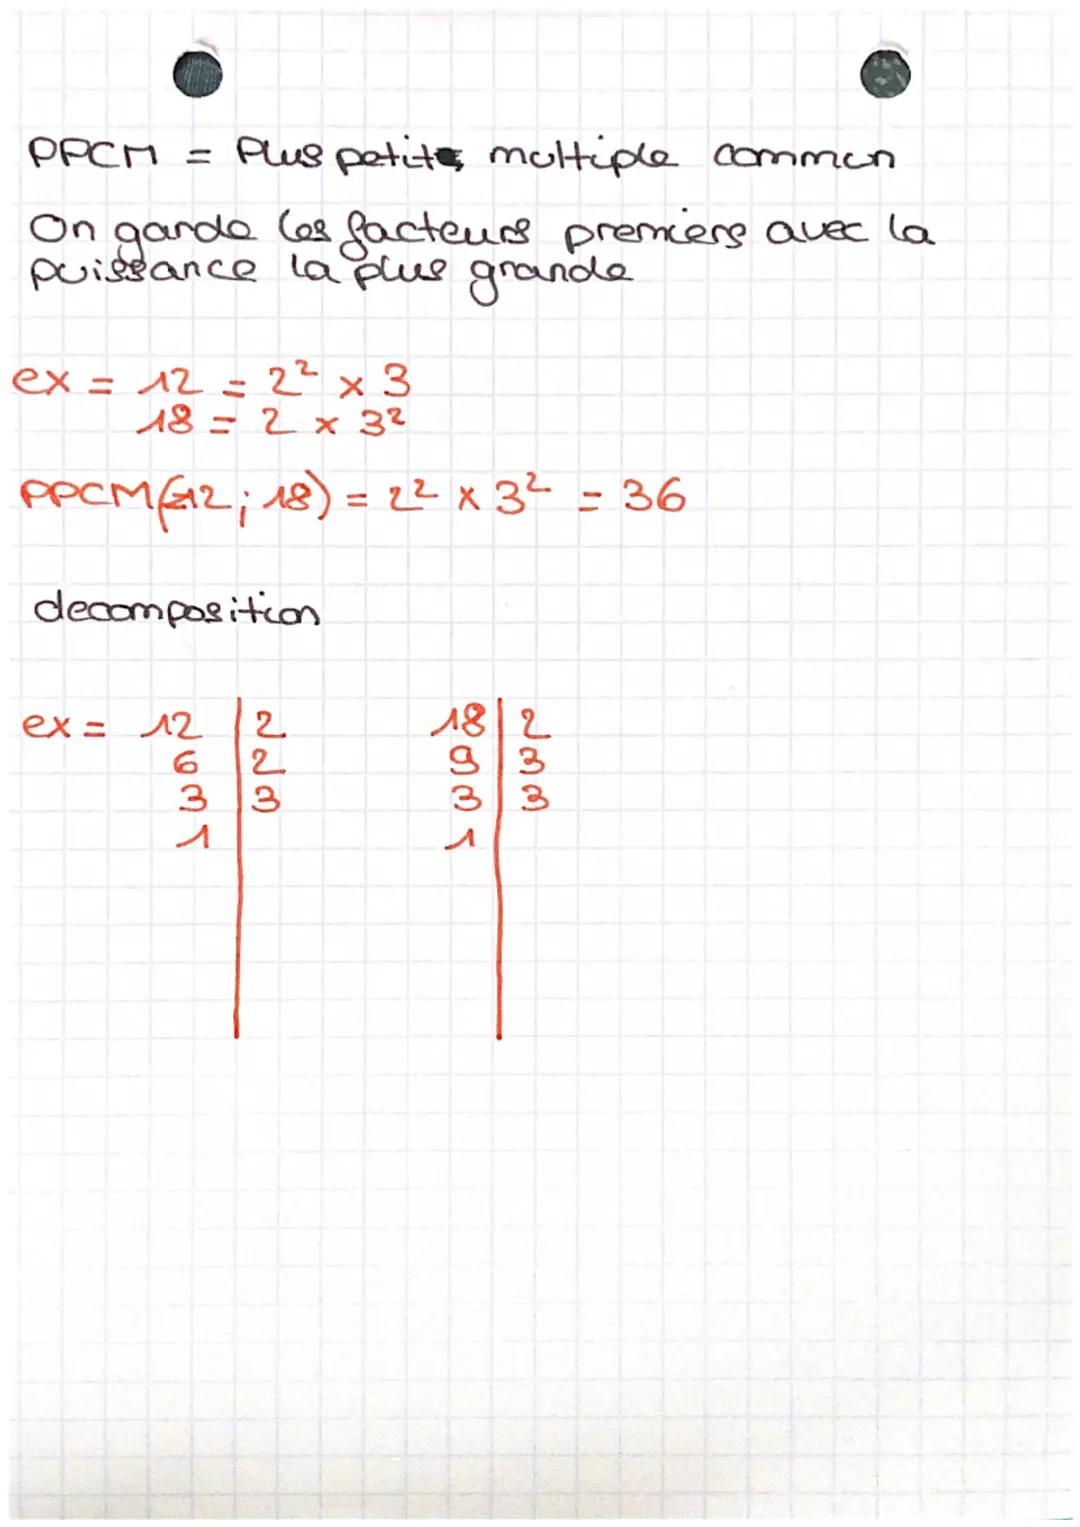 PPCM = Plus petit multiple commun
On garde les facteurs premiers avec la
puissance la plus grande
ex = 12 = 2² x 3
18 = 2 x 3²
PPCM(12; 18) = 2² x 3² = 36
decomposition
ex = 12 | 2 18 | 2
6 | 2 9 | 3
3 | 3 3 | 3
1 | 1 |